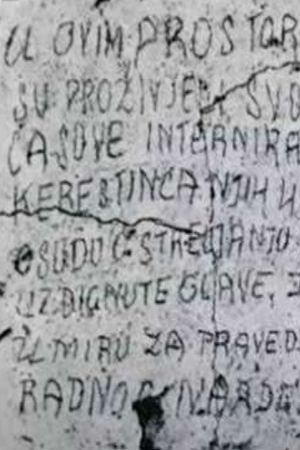 U OVIM PROSTOR
SU PROŽIVJELI SVO
ČASOVE INTERNIRA
KERESTINCA NJIH U
OSUDU STRELJANJU
UZDIGNUTE GLAVE, 
UMIRU ZA PRAVED
RADNOG NARDE